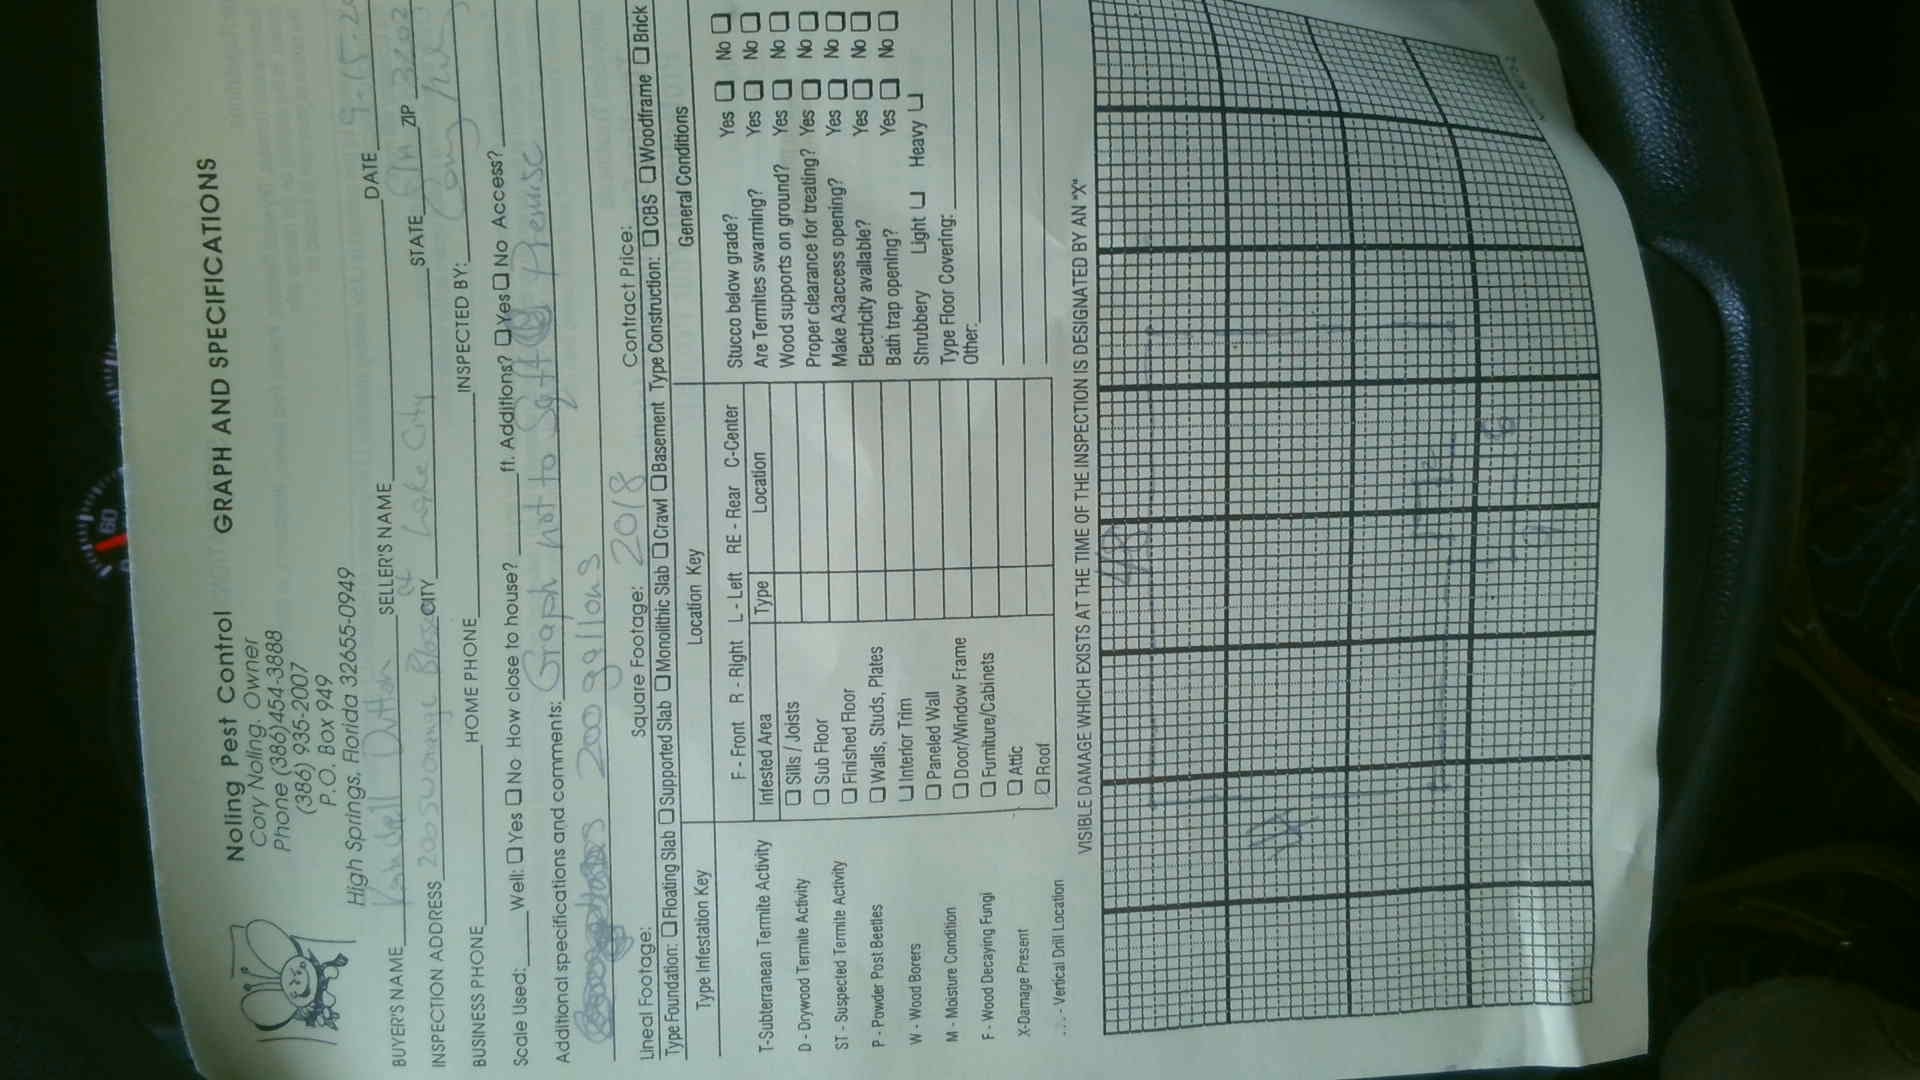 Noling Pest Control GRAPH AND SPECIFICATIONS
Cory Noling, Owner
Phone (386)454-3888
(386) 935-2007
P.O. Box 949
High Springs, Florida 32655-0949
BUYER'S NAME Kandell Dutton SELLER'S NAME DATE
INSPECTION ADDRESS CITY Lake City STATE ZIP
BUSINESS PHONE HOME PHONE INSPECTED BY:
Scale Used: Well: ☐ Yes ☐ No How close to house? ft. Additions? ☐ Yes ☐ No Access?
Additional specifications and comments: Graph not to Premise
200 gallons
Lineal Footage: Square Footage: 2018 Contract Price:
Type Foundation: ☐ Floating Slab ☐ Supported Slab ☐ Monolithic Slab ☐ Crawl ☐ Basement Type Construction: ☐ CBS ☐ Woodframe ☐ Brick
Type Infestation Key
T-Subterranean Termite Activity
D - Drywood Termite Activity
ST - Suspected Termite Activity
P - Powder Post Beetles
W - Wood Borers
M - Moisture Condition
F - Wood Decaying Fungi
X-Damage Present
... - Vertical Drill Location
Location Key
F - Front R - Right L - Left RE - Rear C-Center
Infested Area Type Location
☐ Sills / Joists
☐ Sub Floor
☐ Finished Floor
☐ Walls, Studs, Plates
☐ Interior Trim
☐ Paneled Wall
☐ Door/Window Frame
☐ Furniture/Cabinets
☐ Attic
☐ Roof
General Conditions
Stucco below grade? Yes ☐ No ☐
Are Termites swarming? Yes ☐ No ☐
Wood supports on ground? Yes ☐ No ☐
Proper clearance for treating? Yes ☐ No ☐
Make A3access opening? Yes ☐ No ☐
Electricity available? Yes ☐ No ☐
Bath trap opening? Yes ☐ No ☐
Shrubbery Light ☐ Heavy ☐
Type Floor Covering:
Other:
VISIBLE DAMAGE WHICH EXISTS AT THE TIME OF THE INSPECTION IS DESIGNATED BY AN "X"